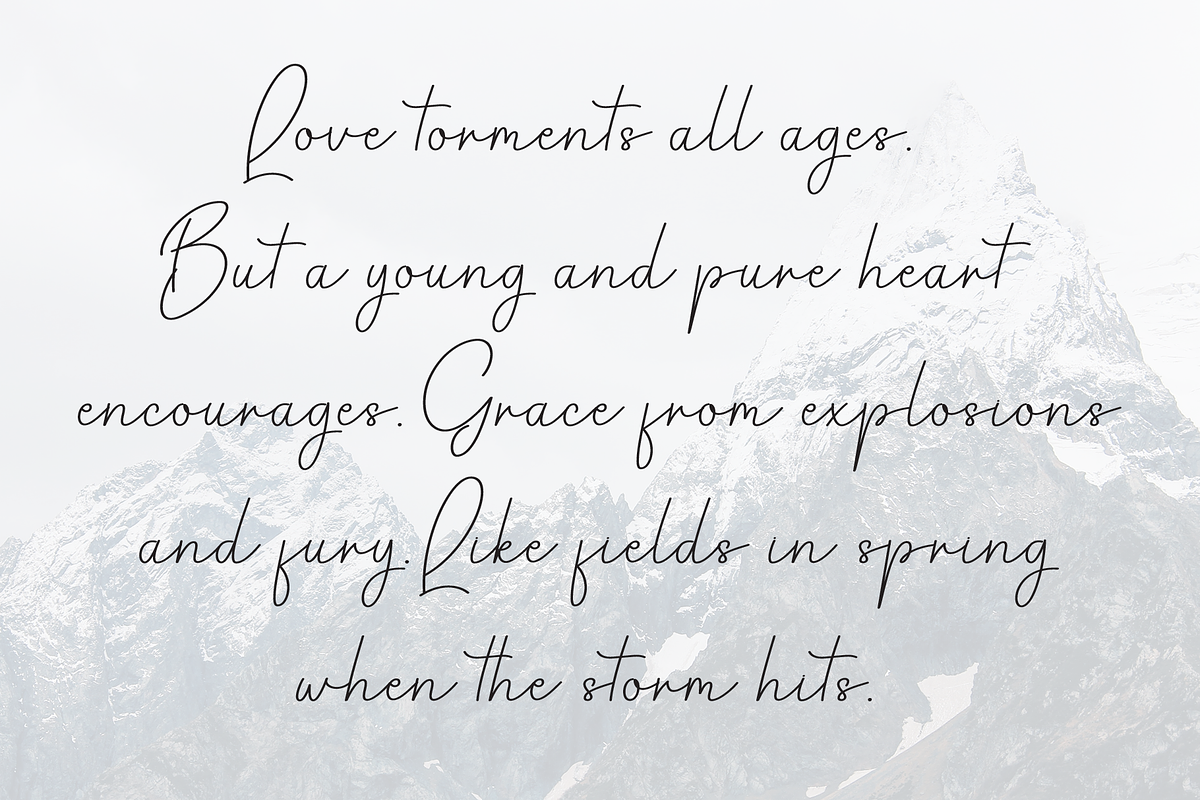 Love torments all ages.
But a young and pure heart
encourages. Grace from explosions
and fury. Like fields in spring
when the storm hits.